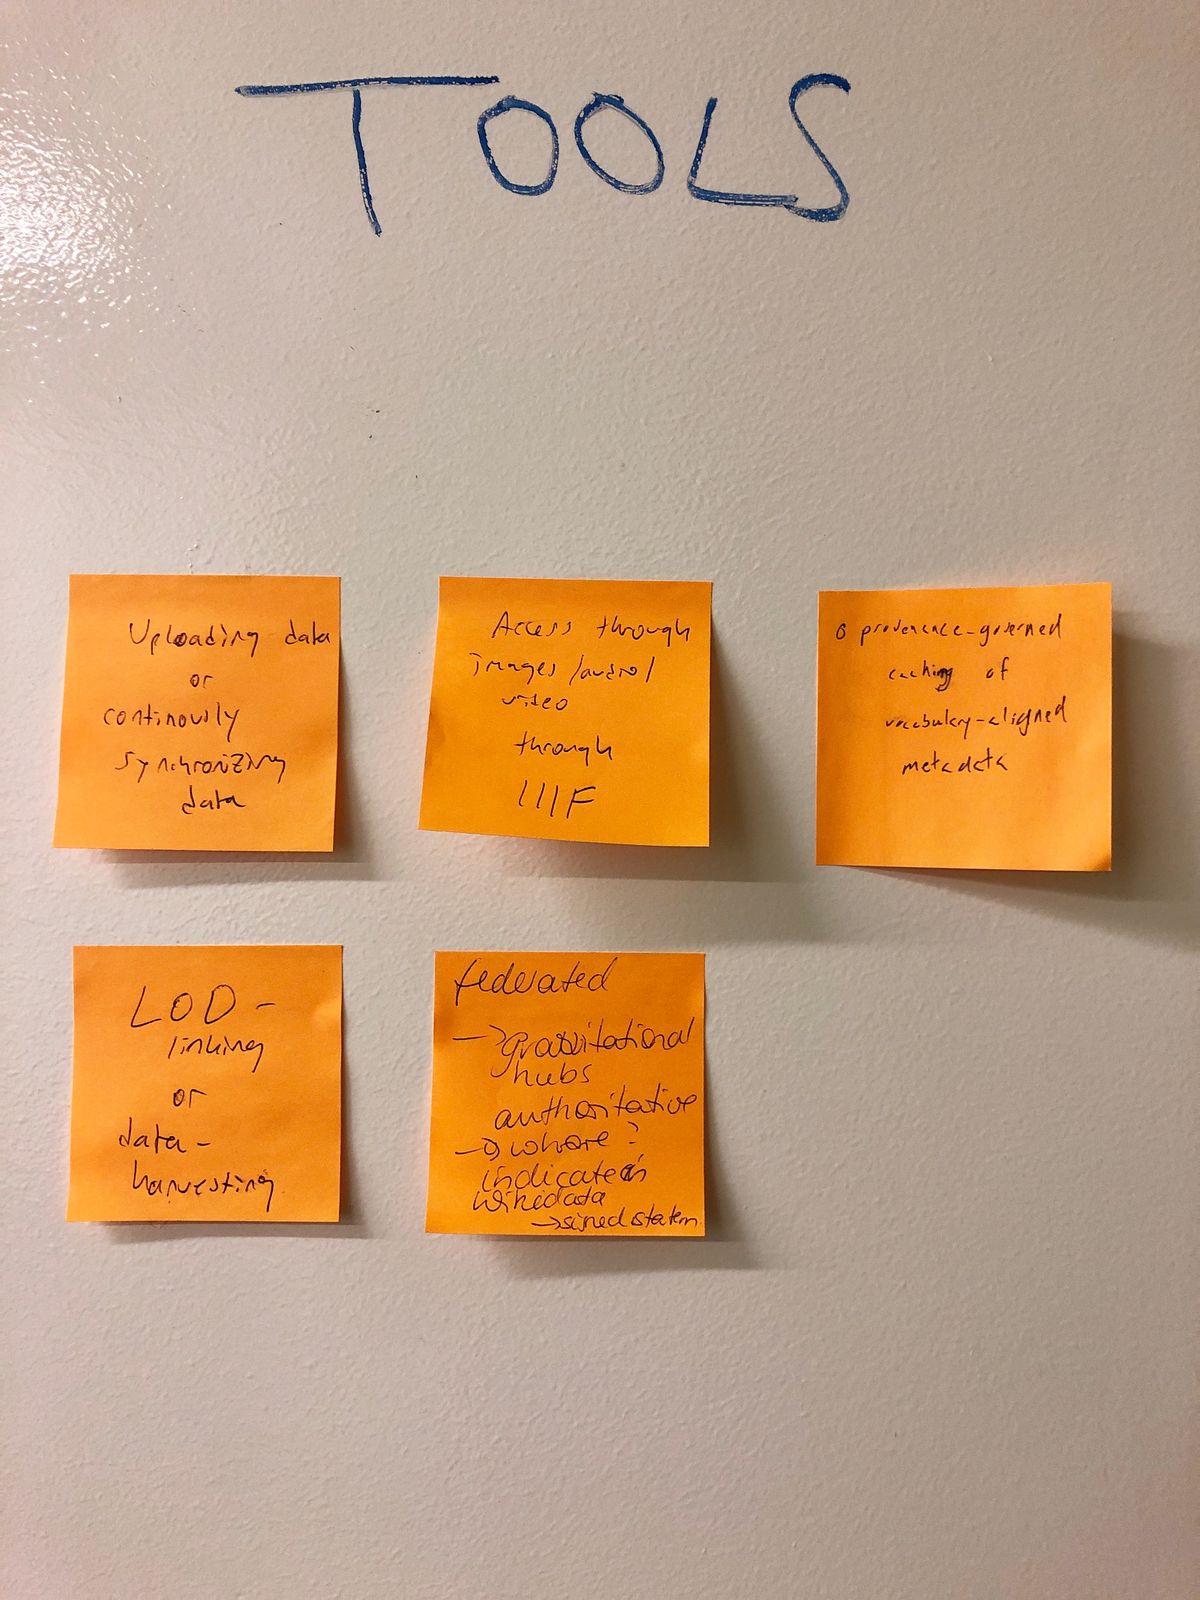 TOOLS
Uploading data
or
continously
synchronizing
data
Access through
images/audio/
video
through
IIIF
o provenance-governed
caching of
vocabulary-aligned
metadata
LOD-
linking
or
data-
harvesting
federated
→ gravitational
hubs
authoritative
→ where?
indicate in
wikidata
→ signed statem.